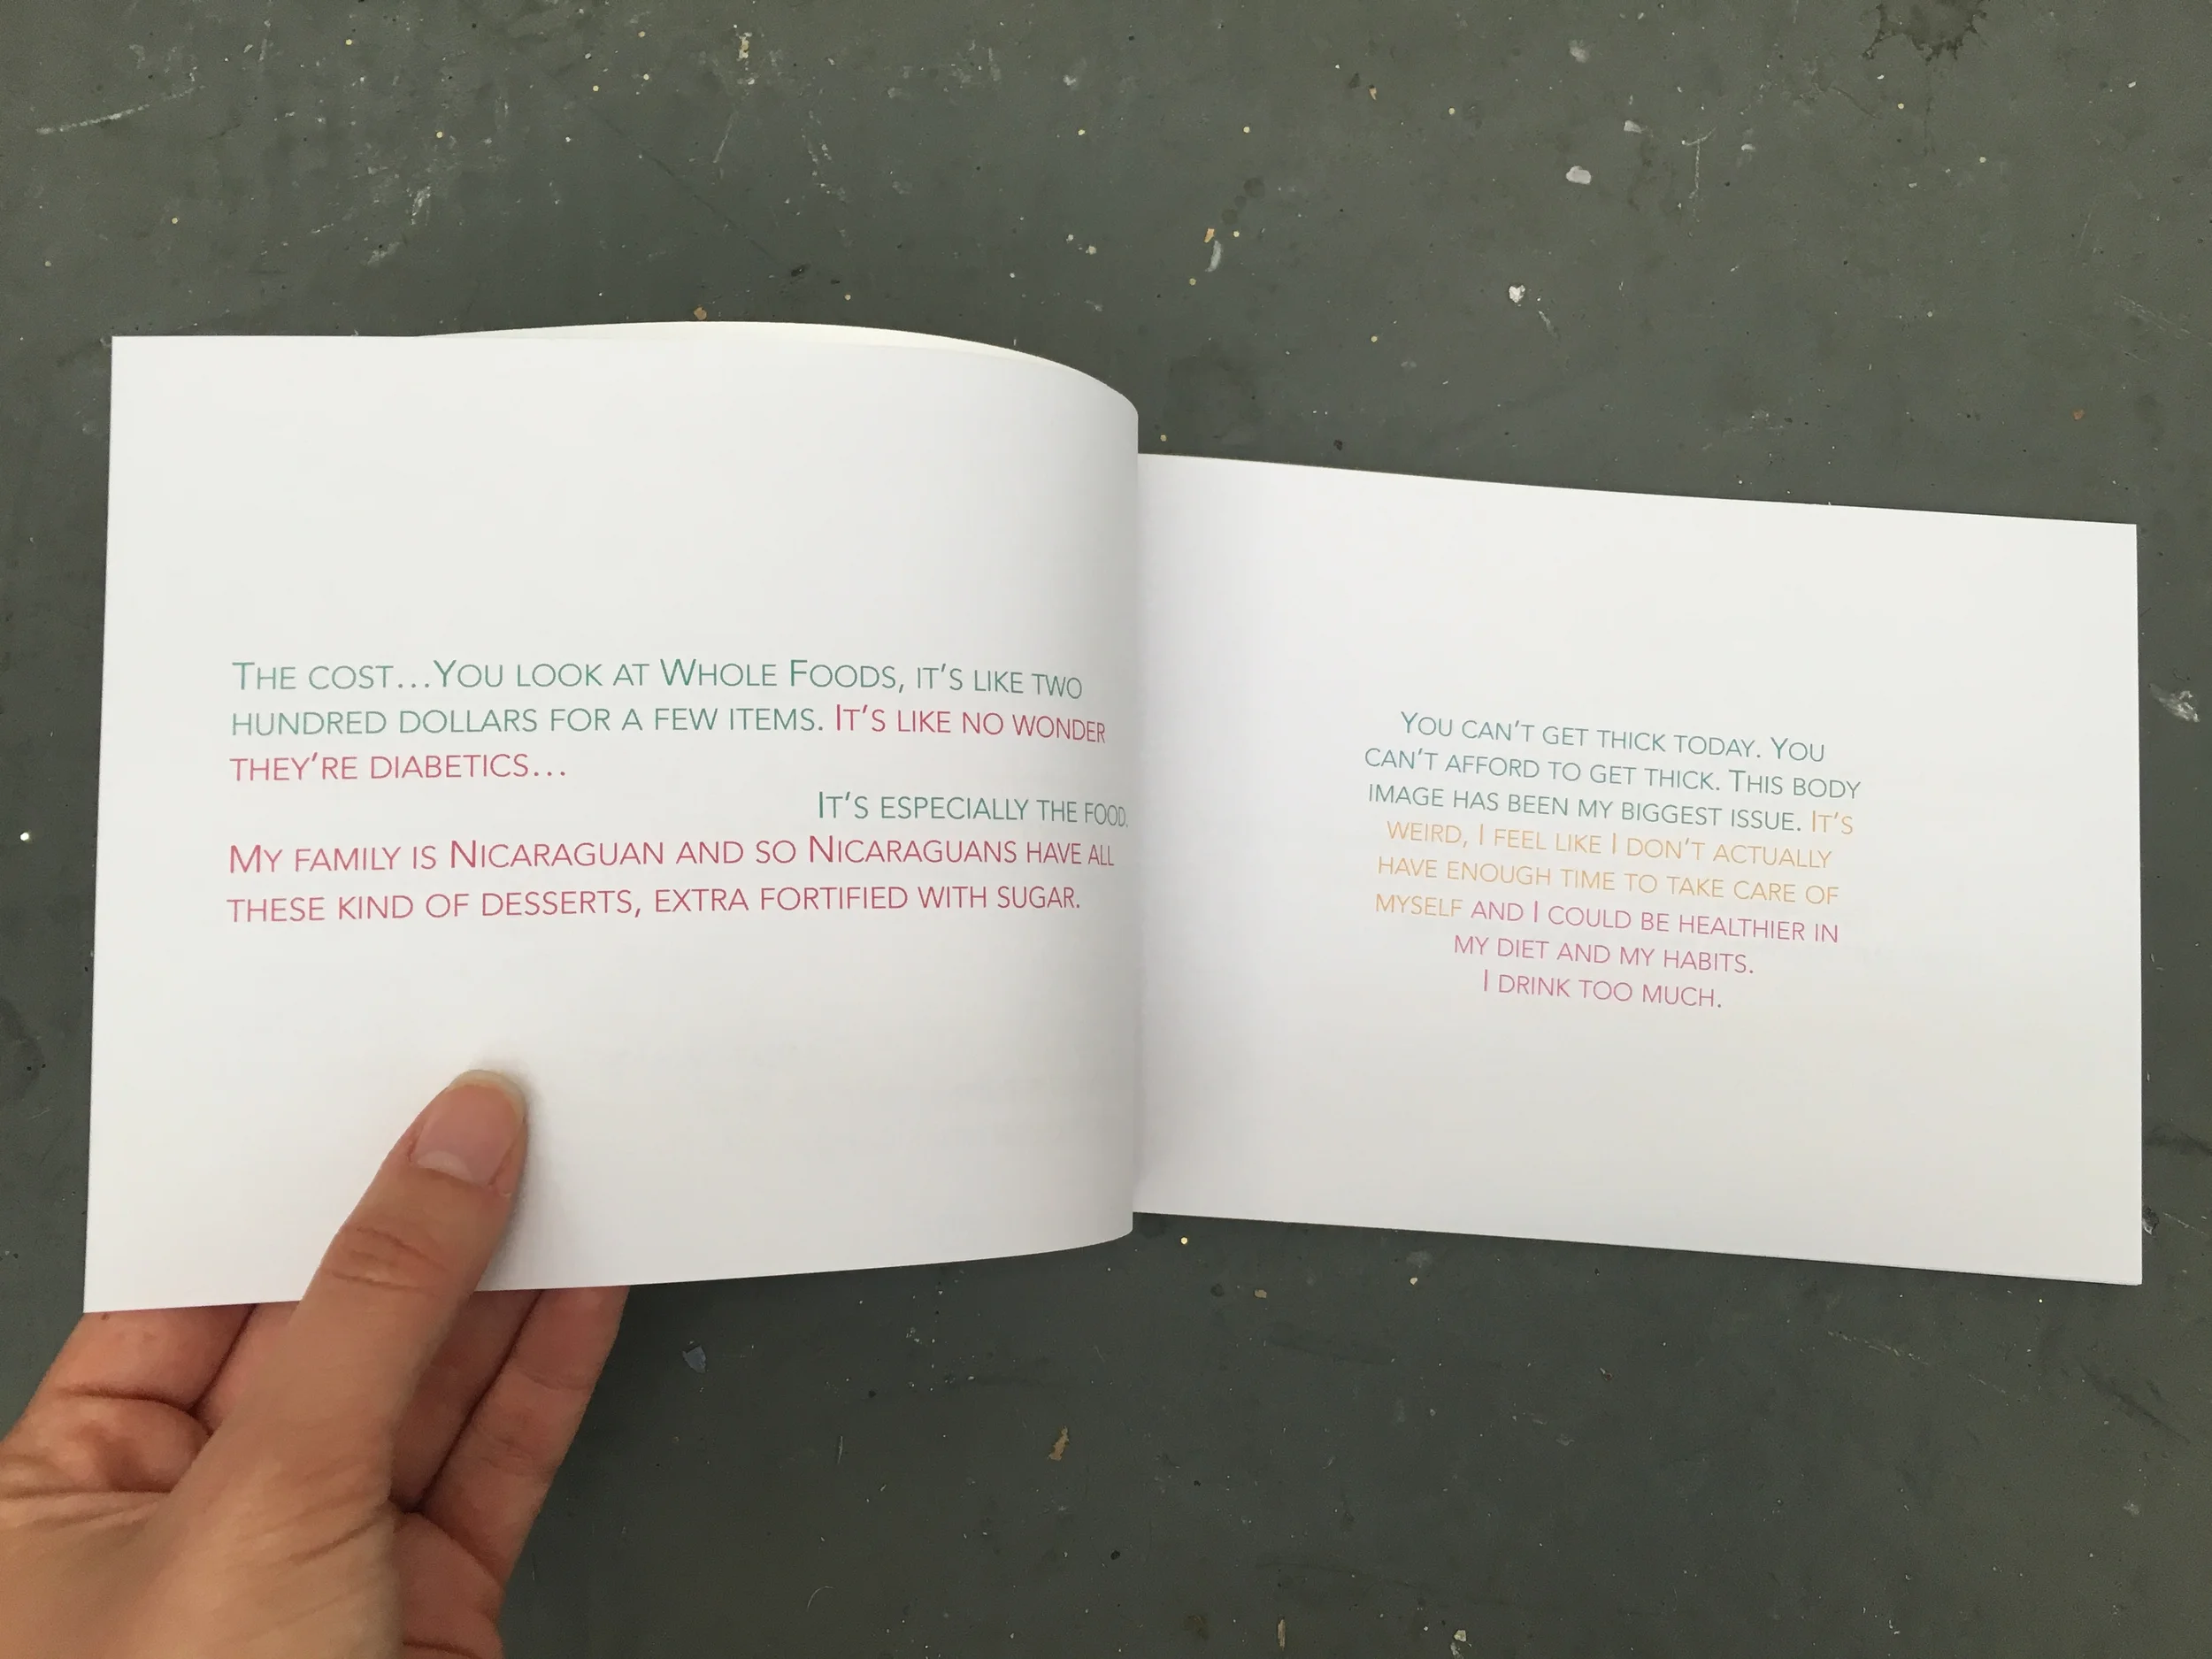 The cost...You look at Whole Foods, it's like two
hundred dollars for a few items. It's like no wonder
they're diabetics...
It's especially the food.
My family is Nicaraguan and so Nicaraguans have all
these kind of desserts, extra fortified with sugar.
You can't get thick today. You
can't afford to get thick. This body
image has been my biggest issue. It's
weird, I feel like I don't actually
have enough time to take care of
myself and I could be healthier in
my diet and my habits.
I drink too much.